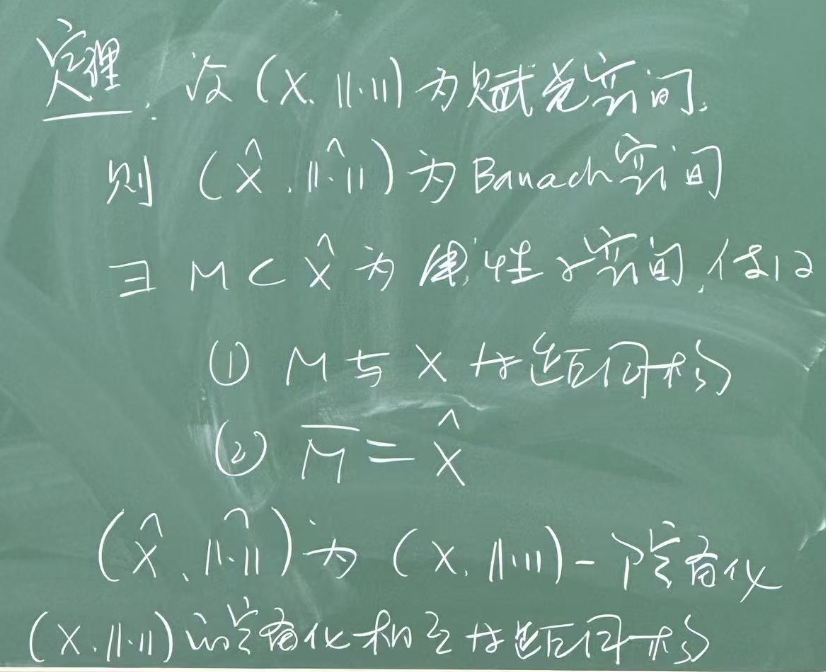 定理. 设 (X, ||·||) 为赋范空间,
则 (X̂, ||·||^) 为Banach空间
∃ M ⊂ X̂ 为线性子空间, 使得
① M与X保距同构
② M̄ = X̂
(X̂, ||·||^) 为 (X, ||·||) 一个完备化
(X, ||·||) 的完备化相互保距同构